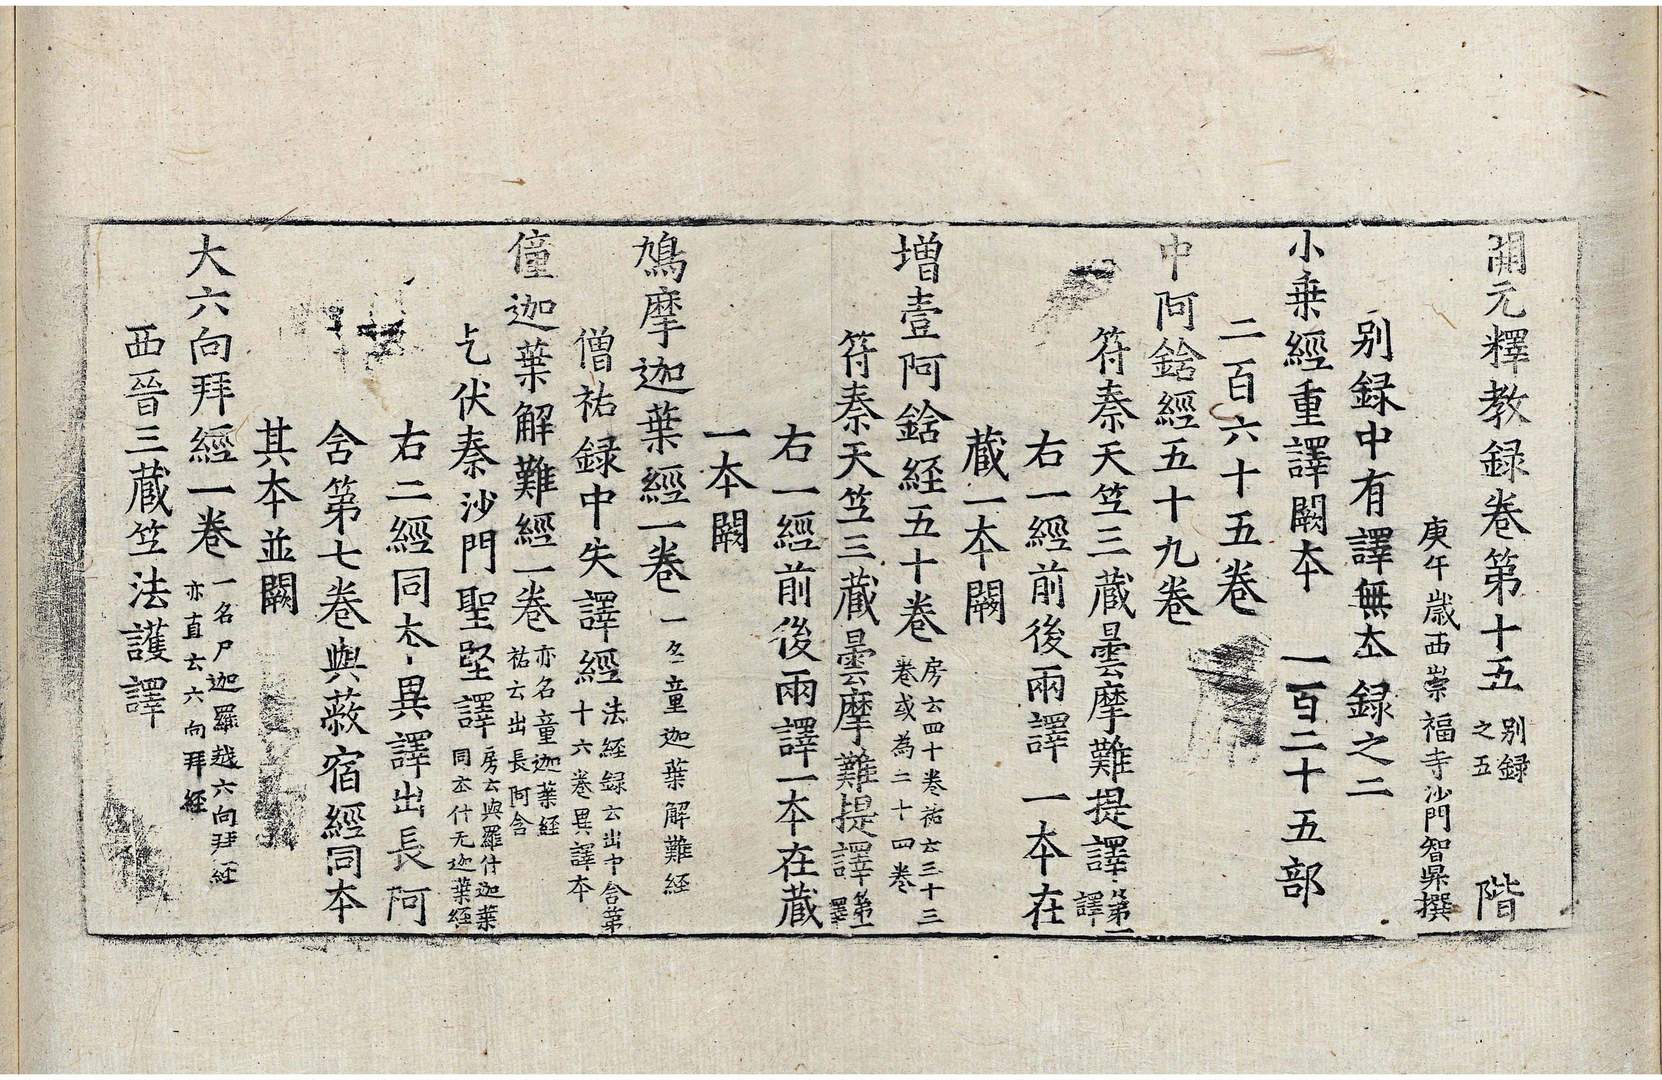 開元釋教録卷第十五 别録之五 階
庚午歳西崇福寺沙門智昇撰
别録中有譯無本録之二
小乗經重譯闕本 一百二十五部
二百六十五卷
中阿鋡經五十九卷
符秦天竺三藏曇摩難提譯 第一譯
右一經前後兩譯 一本在
藏一本闕
增壹阿鋡経五十卷 房云四十卷祐云三十三卷或為二十四卷
符秦天竺三藏曇摩難提譯 第一譯
右一經前後兩譯一本在藏
一本闕
鳩摩迦葉經一卷 一名童迦葉解難経
僧祐録中失譯經 法経録云出中含第十六卷異譯本
僮迦葉解難經一卷 亦名童迦葉経祐云出長阿含
乞伏秦沙門聖堅譯 房云與羅什迦葉同本什无迦葉経
右二經同本異譯出長阿
含第七卷與蔽宿經同本
其本並闕
大六向拜經一卷 一名尸迦羅越六向拜経亦直云六向拜経
西晉三藏竺法護譯